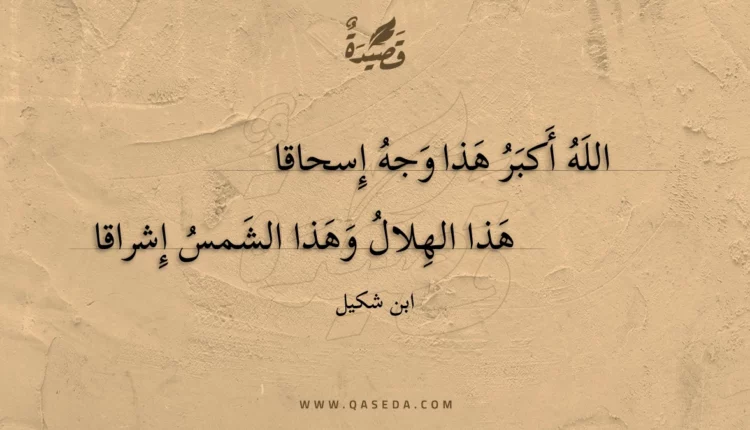 قَصِيْدَةٌ
اللَهُ أَكبَرُ هَذا وَجهُ إِسحاقا
هَذا الهِلالُ وَهَذا الشَمسُ إِشراقا
ابن شكيل
WWW.QASEDA.COM